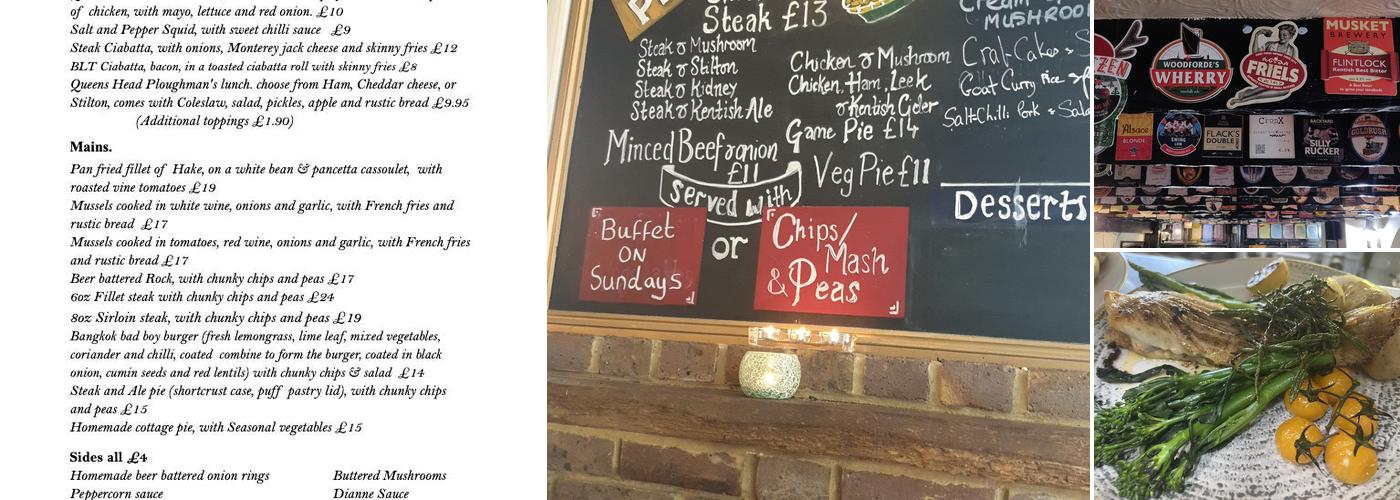 of chicken, with mayo, lettuce and red onion. £10
Salt and Pepper Squid, with sweet chilli sauce £9
Steak Ciabatta, with onions, Monterey jack cheese and skinny fries £12
BLT Ciabatta, bacon, in a toasted ciabatta roll with skinny fries £8
Queens Head Ploughman's lunch. choose from Ham, Cheddar cheese, or
Stilton, comes with Coleslaw, salad, pickles, apple and rustic bread £9.95
(Additional toppings £1.90)
Mains.
Pan fried fillet of Hake, on a white bean & pancetta cassoulet, with
roasted vine tomatoes £19
Mussels cooked in white wine, onions and garlic, with French fries and
rustic bread £17
Mussels cooked in tomatoes, red wine, onions and garlic, with French fries
and rustic bread £17
Beer battered Rock, with chunky chips and peas £17
6oz Fillet steak with chunky chips and peas £24
8oz Sirloin steak, with chunky chips and peas £19
Bangkok bad boy burger (fresh lemongrass, lime leaf, mixed vegetables,
coriander and chilli, coated combine to form the burger, coated in black
onion, cumin seeds and red lentils) with chunky chips & salad £14
Steak and Ale pie (shortcrust case, puff pastry lid), with chunky chips
and peas £15
Homemade cottage pie, with Seasonal vegetables £15
Sides all £4
Homemade beer battered onion rings
Buttered Mushrooms
Peppercorn sauce
Dianne Sauce
Steak £13
Steak & Mushroom
Steak & Stilton
Steak & Kidney
Steak & Kentish Ale
Minced Beef & onion
£11
Chicken & Mushroom
Chicken, Ham, Leek
& Kentish Cider
Game Pie £14
Veg Pie £11
served with
Buffet
ON
Sundays
or
Chips/
Mash
& Peas
Cream
MUSHROO
Crab Cakes & S
Goat Curry Rice
Salt & Chilli Pork & Sala
Desserts
ZEN
WOODFORDE'S
WHERRY
FRIELS
MUSKET
BREWERY
FLINTLOCK
Kentish Best Bitter
Alsace
BLONDE
FLACK'S
DOUBLE
CronX
BACKYARD
SILLY
RUCKER
GOLDRUSH